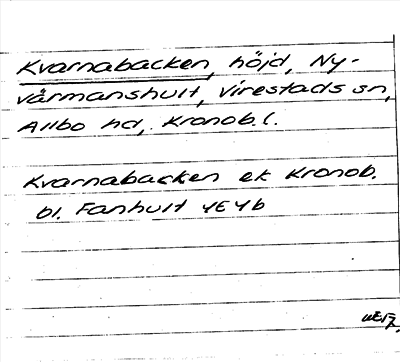 Kvarnabacken, höjd, Ny-
värmanshult, Virestads sn,
Allbo hd, Kronob. l.
Kvarnabacken ek Kronob.
bl. Fanhult 4E4b